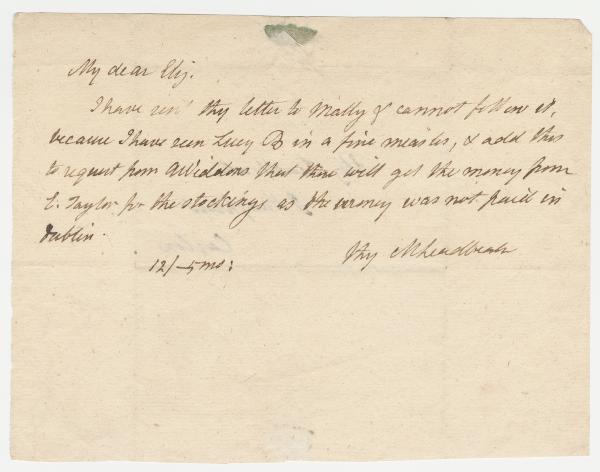 My dear Eliz.
I have sent thy letter to Molly & cannot follow it,
because I have seen Lucy B in a fine measles, & add this
to request from that thou will get the money from
E. Taylor for the stockings as the money was not paid in
Dublin.
12/-5mo: thy MLeadbeater